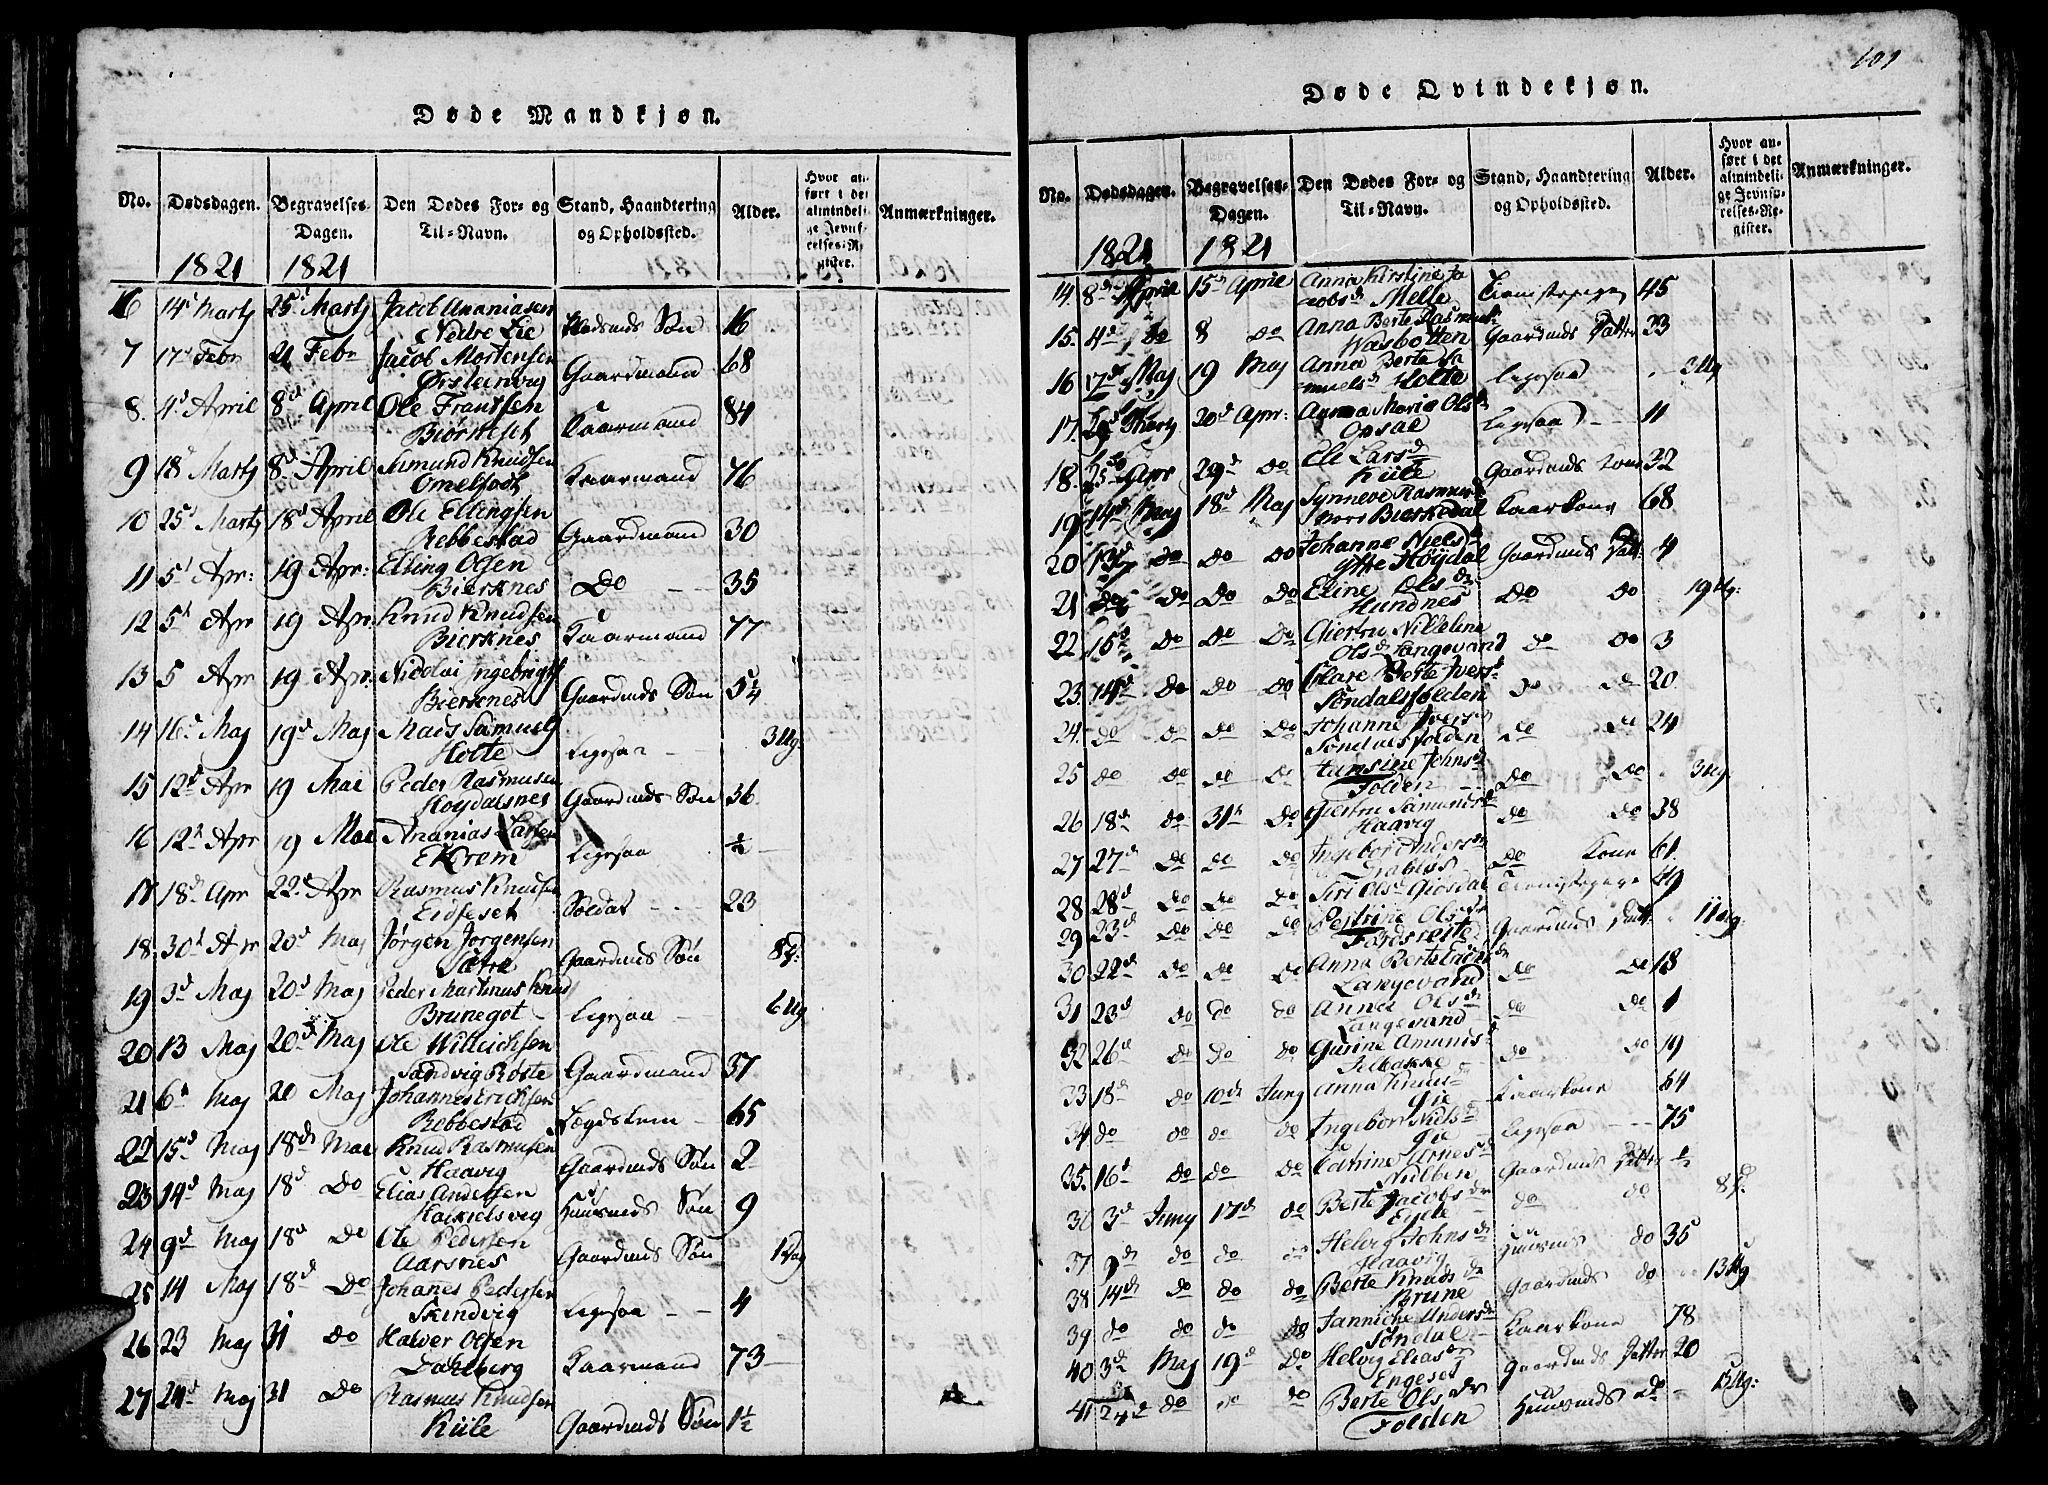 Døde Mandkjøn.
No. Dødsdagen. Begravelses-Dagen. Den Dødes For- og Til-Navn. Stand, Haandtering og Opholdssted. Alder. Hvor anført i det almindelige Jevnførelses-Register. Anmærkninger.
1821 1821
6 14d Martj 25d Martj Jacob Ananiasen Nedre Lie Søn 16
7 17d Febr 21 Febr Jacob Mortensen Ørstenvig Gaardmand 68
8. 4d April 8d April Ole Frantsen Biørneset Kaarmand 84
9 18d Martj 8d April Knudsen Kaarmand 76
10 25d Martj 18d April Ole Ellingsen Rebbestad Gaardmand 30
11 5d Apr: 19 Apr: Elling Olsen Bierknes Do 35
12 5d Apr 19 Apr. Knud Knudsen Bierknes Kaarmand 77
13 5 Apr 19 Apr. Nicolai Ingebrigts Bierknes Gaardmds Søn 5¼
14 16d Maj 19d Maj Mads Samuels Holte Ligesaa 3 Ug:
15 12d Apr 19 Mai Peder Rasmusen Høydalsnes Gaardmds Søn 36
16 12d Apr 19 Mai Ananias Larsen Ekrem Ligesaa ½
17 18d Apr 22d Apr Rasmus Knudsen Eidseset Soldat 23
18. 30d Apr 20d Maj Jørgen Jørgensen Sætre Gaardmds Søn
19 3d Maj 20d Maj Peder Martinus Knuds Brunegot Ligesaa 6 Ug
20 13 Maj 20d Maj Ole Sandvig Røste Gaardmand 37
21 6d Maj 20 Maj Johannes Erichsen Rebbestad Lægdslem 65
22 15d Maj 18d Mai Knud Rasmusen Haavig Gaardmds Søn 2
23 14d Maj 18d Do Elias Andersen Huusmds Søn 9
24 9d Maj 18d Do Ole Pedersen Aarsnes Gaardmds Søn 1 Dag
25 14 Maj 18d Do Johanes Pedersen Ligesaa 4
26 23 Maj 31 Do Halver Olsen Dahlberg Kaarmand 73
27 24d Maj 31 Do Rasmus Knudsen Kiile Gaardmds Søn 1½
101
Døde Qvindekjøn.
No. Dødsdagen. Begravelses-Dagen. Den Dødes For- og Til-Navn. Stand, Haandtering og Opholdssted. Alder. Hvor anført i det almindelige Jevnførelses-Register. Anmærkninger.
1821 1821
14. 8d April 15d April Anna Kirstine Jacobsd Melle Tienistepige 45
15. 4d do 8 do Anna Berte Rasmusd Wasbotten Gaardmds Datter 23
16 17d Maj 19 Maj Anna Berte Samuelsd Holte Ligesaa 3 Ug
17. Martj 20d Apr: Anna Maria Olsd Opsal Ligesaa 11
18. 25d Apr 29d Do Eli Larsd Kiile Gaardmds Kone 32
19 14d Maj 18d Maj Synneve Rasmusd Bierkedal Kaarkone 68
20 13d Do Do Do Johanne Nielsd Yttre Høydal Gaardmds Datt: 4
21 do do Do Do Eline Olsd Hundnes Do Do 19 Ug:
22 15d do Do Do Giertru Nilleline Olsd Langevand do do 3
23. 14d do Do Do Berte Iversd Søndalsfolden do do 20
24. do do do do Johanne Iversd Søndalsfolden do do 24
25 do do do do Johnsd Folden do do 3 Ug
26 18d do 31d do Giertru Simundsd Haavig do do 38
27 27d do do do Ingebor Andersd do Kone 61
28 28d do do do Siri Olsd Tienistepige 49
29 23d do do do Olsd Gaardmds Datt: 11 Ug
30 22d do do do Anna Berte Langevand do do 18
31 23d do do do Anne Olsd Langevand do do 1
32 26d do do do Gurine Amundsd do do 19
33 18d do 10d Juny Anna Knudsd Øie Kaarkone 64
34 do do do do Ingebor Nielsd Øie Ligesaa 75
35. 16d do do do Catrine Arnesd Nubben Gaardmds Datter ½
36 3d Juny 17d do Berte Jacobsd do do
37 9d do do do Helvig Johnsd Haavig Huusmds do 35
38 14d do do do Berte Knudsd Brune Gaardmds do 13 Ug
39 do do do do Jannicke Andersd Søndal Kaarkone 78
40 3d Maj 19d Do Helvig Eliasd Engeset Gaardmds Datter 20
41 24d do do do Berte Olsd Folden Huusmds Do